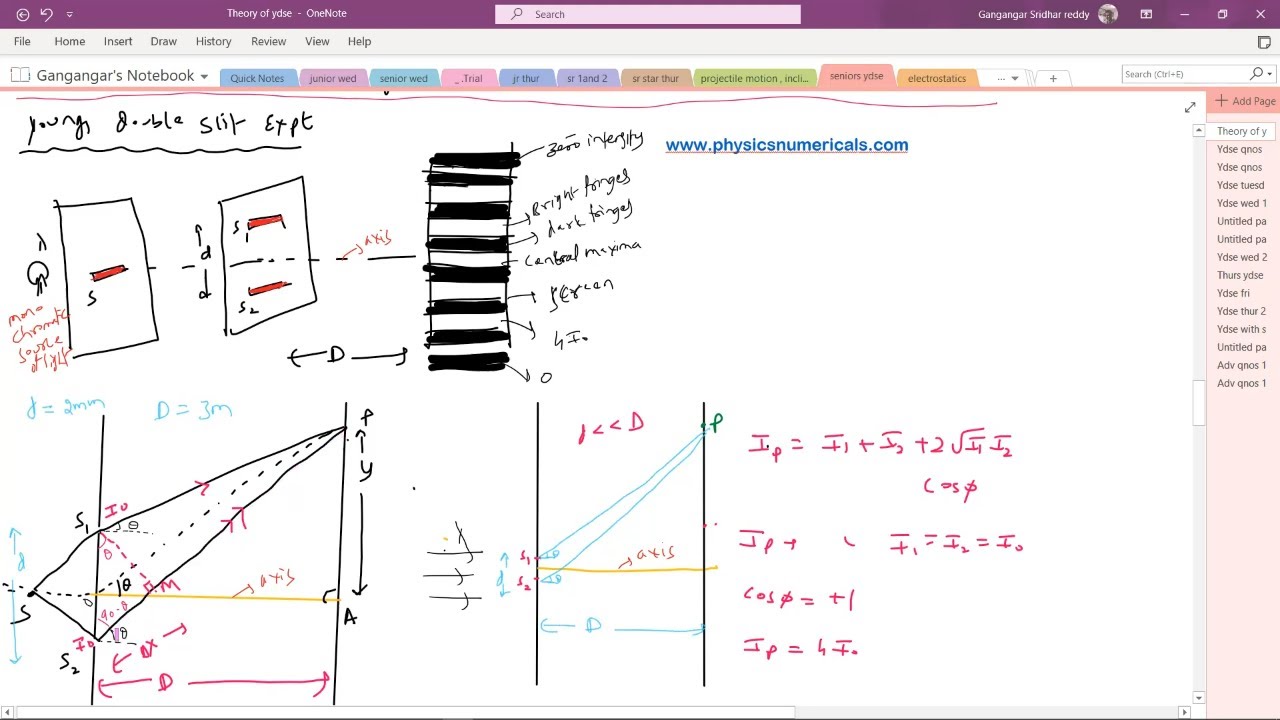 Theory of ydse - OneNote
Search
Gangangar Sridhar reddy
File Home Insert Draw History Review View Help
Gangangar's Notebook
Quick Notes
junior wed
senior wed
_ .Trial
jr thur
sr 1and 2
sr star thur
projectile motion , incli...
seniors ydse
electrostatics
...
Search (Ctrl+E)
Add Page
Theory of y
Ydse qnos
Ydse qnos
Ydse tuesd
Ydse wed 1
Untitled pa
Untitled pa
Ydse wed 2
Thurs ydse
Ydse fri
Ydse thur 2
Ydse with s
Untitled pa
Adv qnos 1
Adv qnos 1
youngs double slit Expt
www.physicsnumericals.com
zero intensity
Bright fringes
dark fringes
Central maxima
screen
4I₀
0
λ
mono
chromatic
source
of light
S
S₁
d
d
S₂
axis
D
d = 2mm
D = 3m
P
y
S₁
I₀
θ
θ
d
S
O
θ
M
axis
90-θ
A
I₀
θ
S₂
Δx
D
d << D
P
S₁
θ
axis
d
S₂
θ
D
Iₚ = I₁ + I₂ + 2√I₁ I₂
cosφ
Iₚ → ( I₁ = I₂ = I₀
cosφ = +1
Iₚ = 4I₀